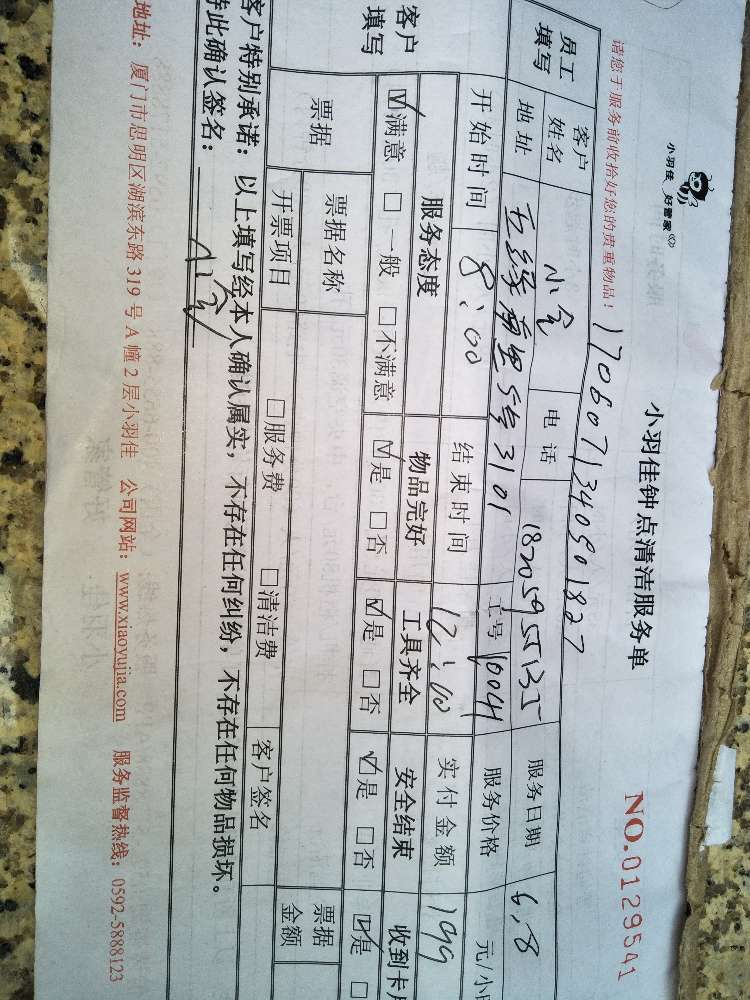 小羽佳 好管家
小羽佳钟点清洁服务单
NO.0129541
请您于服务前收拾好您的贵重物品!
1706071340901827
员工填写 客户姓名 电话 18205955135 服务日期 6.8
地址 5号3101 工号 10041 服务价格 元/小
开始时间 8:00 结束时间 12:00 实付金额 199
客户填写 服务态度 物品完好 工具齐全 安全结束 收到卡
☑满意 □一般 □不满意 ☑是 □否 ☑是 □否 ☑是 □否 ☑是 □
票据 票据名称 □服务费 □清洁费 票据金额
开票项目 客户签名
客户特别承诺:以上填写经本人确认属实,不存在任何纠纷,不存在任何物品损坏。
特此确认签名:
地址:厦门市思明区湖滨东路319号A幢2层小羽佳 公司网站:www.xiaoyujia.com 服务监督热线:0592-5888123